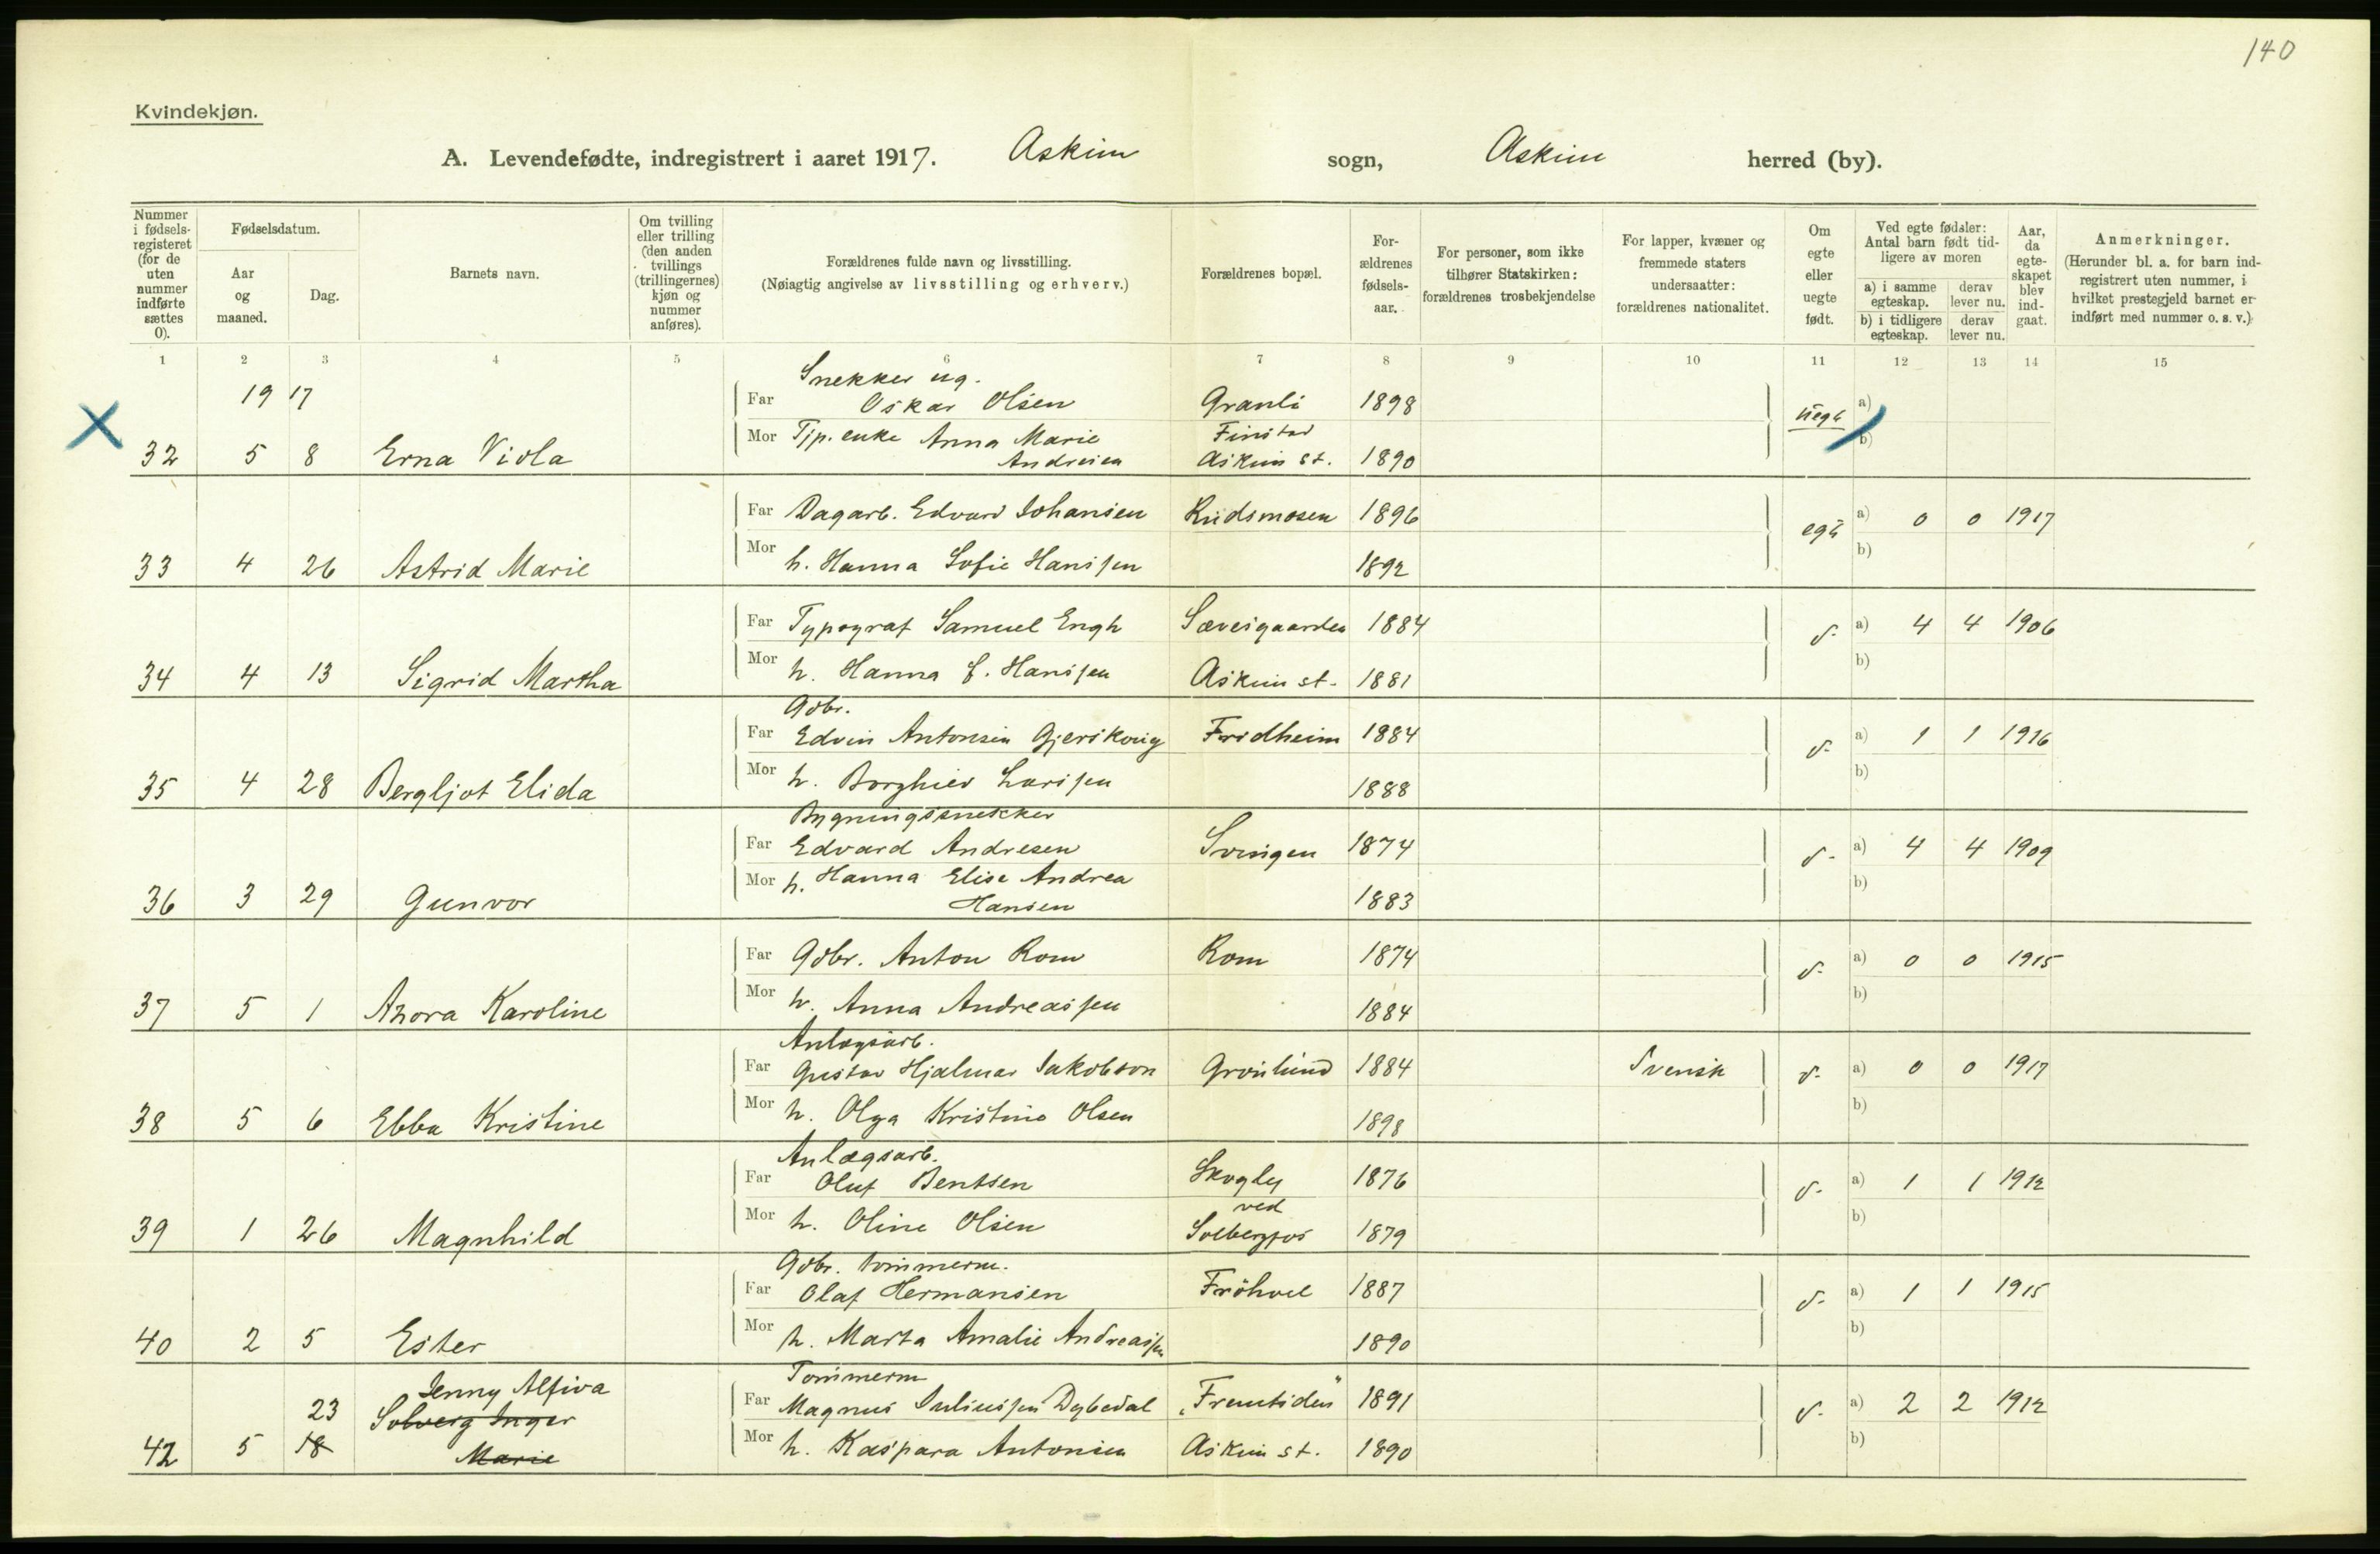 140
Kvindekjøn.
A. Levendefødte, indregistrert i aaret 1917. Askim sogn, Askim herred (by).
Nummer i fødselsregisteret (for de uten nummer indførte sættes 0).
Fødselsdatum.
Aar og maaned.
Dag.
Barnets navn.
Om tvilling eller trilling (den anden tvillings (trillingernes) kjøn og nummer anføres).
Forældrenes fulde navn og livsstilling.
(Nøiagtig angivelse av livsstilling og erhverv.)
Forældrenes bopæl.
Forældrenes fødselsaar.
For personer, som ikke tilhører Statskirken: forældrenes trosbekjendelse
For lapper, kvæner og fremmede staters undersaatter: forældrenes nationalitet.
Om egte eller uegte født.
Ved egte fødsler: Antal barn født tidligere av moren
a) i samme egteskap. derav lever nu.
b) i tidligere egteskap. derav lever nu.
Aar, da egteskapet blev indgaat.
Anmerkninger.
(Herunder bl. a. for barn indregistrert uten nummer, i hvilket prestegjeld barnet er indført med nummer o. s. v.)
1 2 3 4 5 6 7 8 9 10 11 12 13 14 15
19 17
Snekker ug.
Far Oskar Olsen Granli 1898 uegte a)
Mor Tjp. enke Anna Marie Finstad b)
32 5 8 Erna Viola Andresen Askim st. 1890
Far Dagarb. Edvard Johansen Rudsmosen 1896 egte a) 0 0 1917
Mor b)
33 4 26 Astrid Marie h. Hanna Sofie Hanssen 1892
Far Typograf Samuel Engh Sævesgaarden 1884 d- a) 4 4 1906
Mor b)
34 4 13 Sigrid Martha h. Hanna S. Hanssen Askim st. 1881
Gdbr.
Far Edvin Antonsen Fridheim 1884 d- a) 1 1 1916
Mor b)
35 4 28 Bergljot Elida h. Borghild Larssen 1888
Bygningssnekker
Far Edvard Andresen Svingen 1874 d- a) 4 4 1909
Mor h. Hanna Elise Andrea b)
36 3 29 Gunvor Hansen 1883
Far Gdbr. Anton Rom Rom 1874 d- a) 0 0 1915
Mor b)
37 5 1 Azora Karoline h. Anna Andreassen 1884
Anlægsarb.
Far Gustav Hjalmar Jakobson Grønlund 1884 Svensk d- a) 0 0 1917
Mor b)
38 5 6 Ebba Kristine h. Olga Kristine Olsen 1898
Anlægsarb.
Far Oluf Bentsen Skogly 1876 d- a) 1 1 1912
Mor ved b)
39 1 26 Magnhild h. Oline Olsen Solbergfos 1879
Gdbr. tømmerm.
Far Olaf Hermansen Frøhoel 1887 d- a) 1 1 1915
Mor b)
40 2 5 Ester h. Marta Amalie Andreassen 1890
Jenny Alfiva Tømmerm
23 Solveig Inger Far Magnus Juliussen Dybedal "Fremtiden" 1891 d- a) 2 2 1912
Mor b)
42 5 18 Marie h. Kaspara Antonsen Askim st. 1890